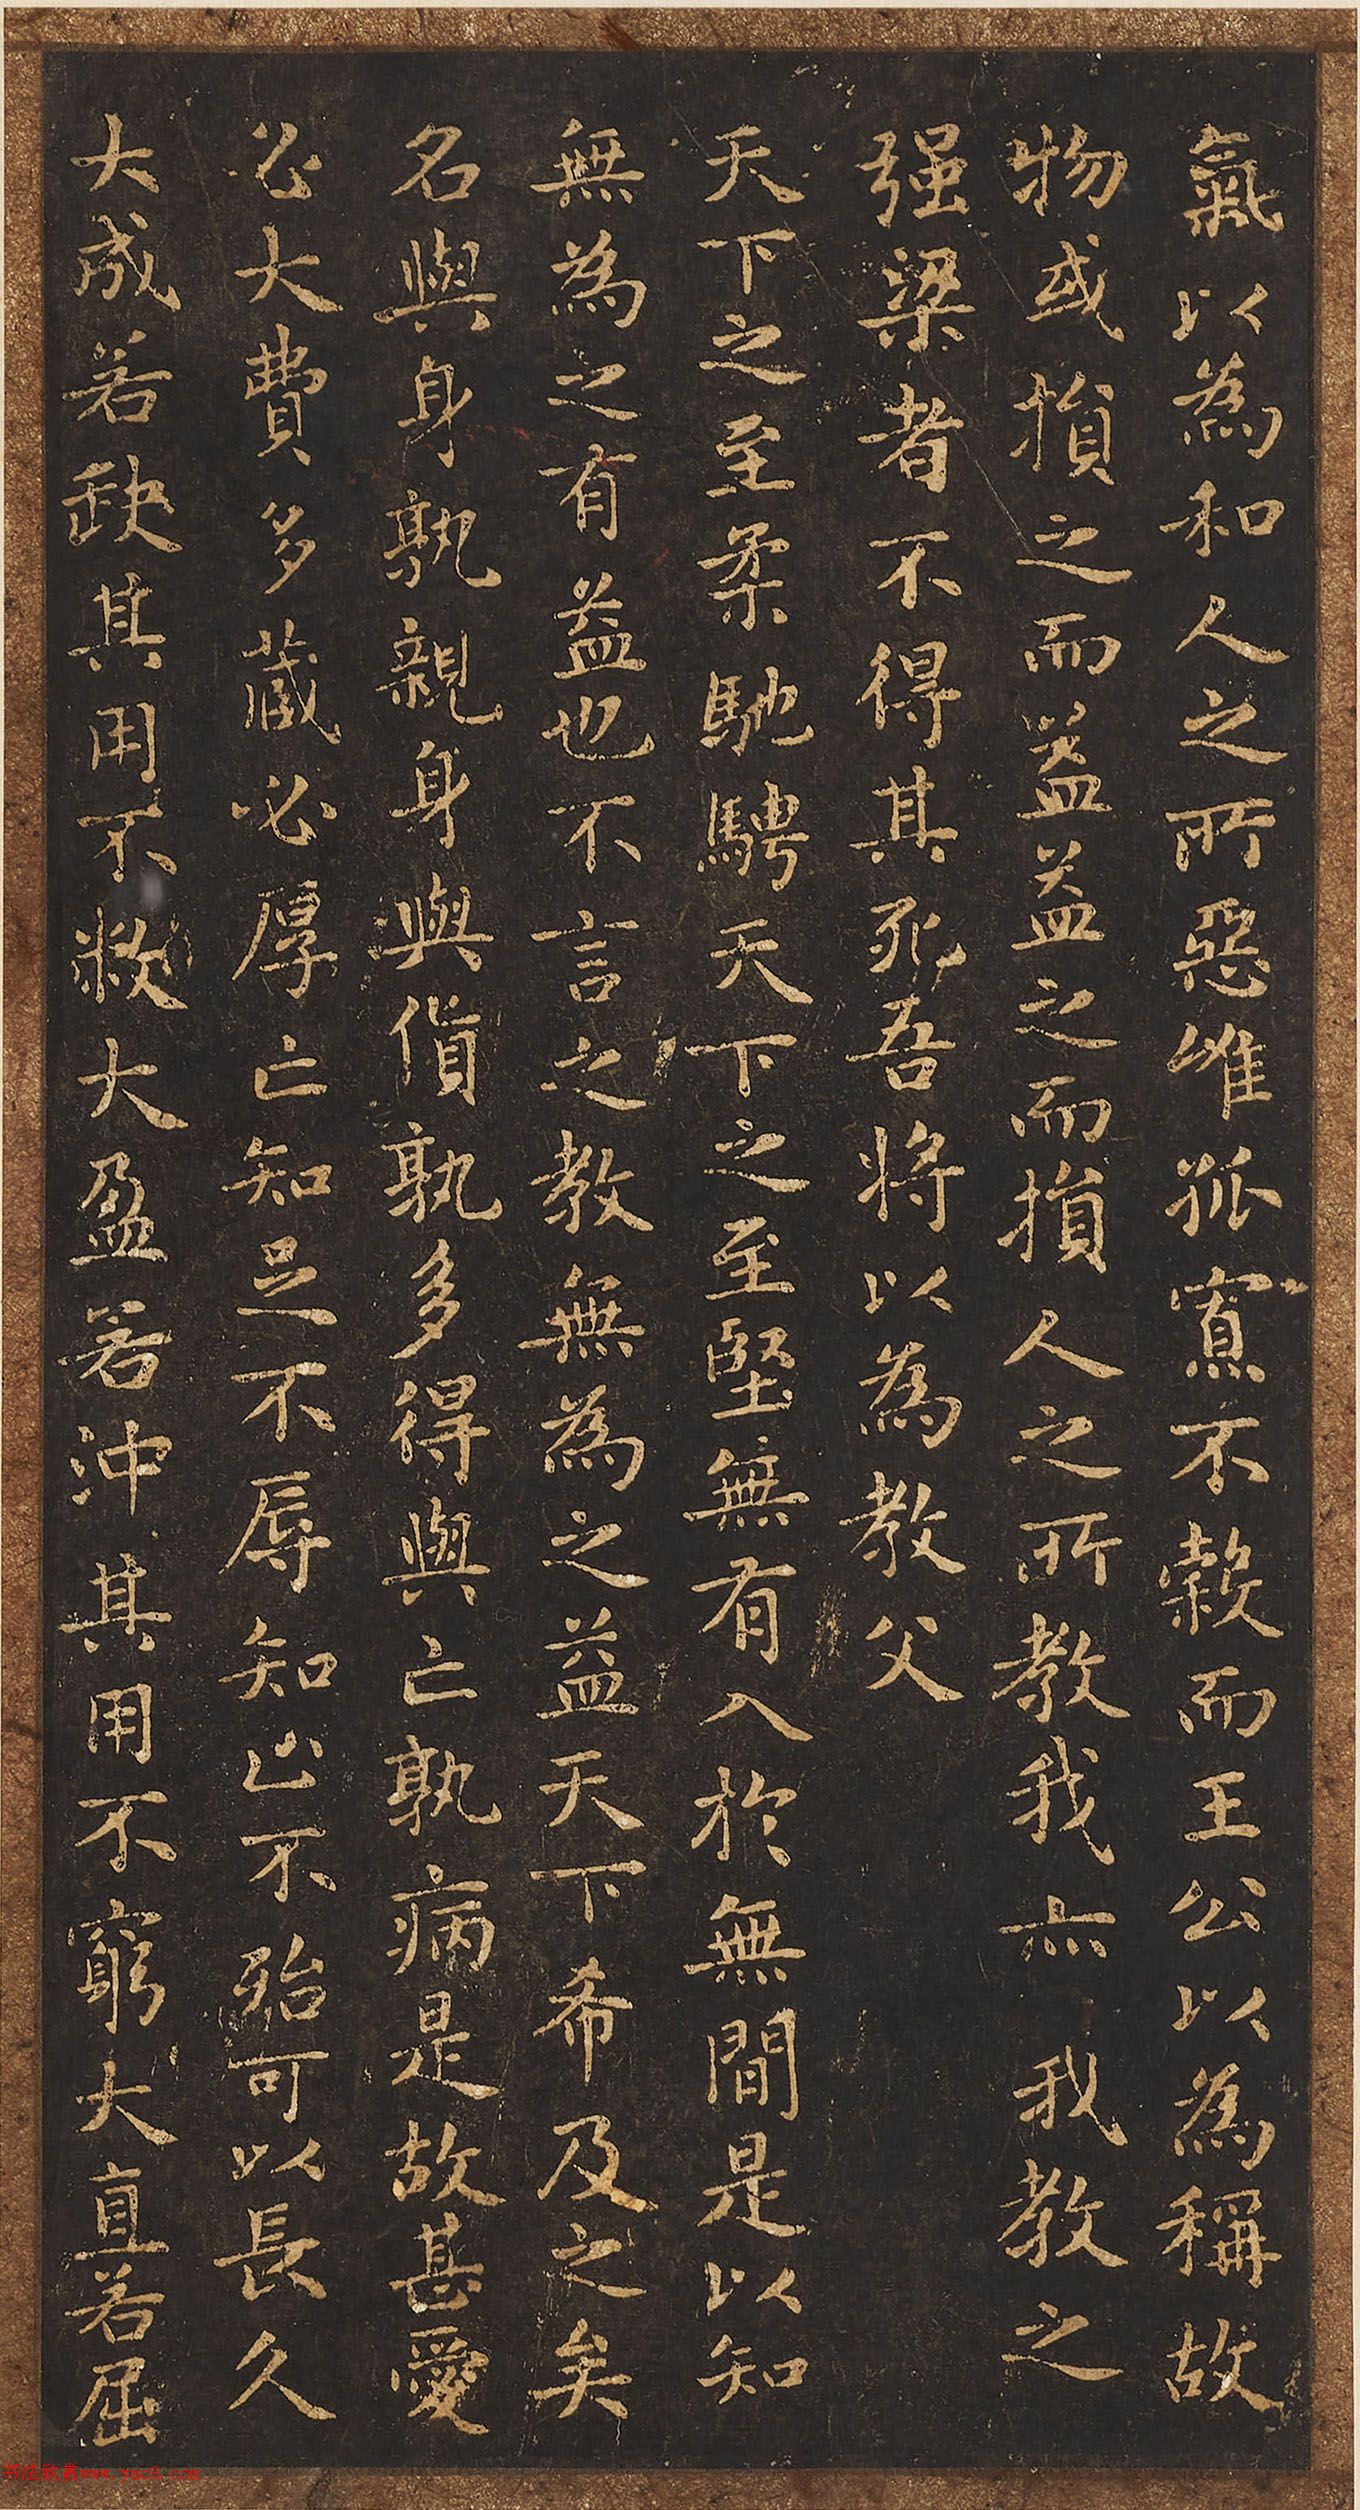 氣以為和人之所惡唯孤寡不穀而王公以為稱故
物或損之而益益之而損人之所教我亦我教之
强梁者不得其死吾將以為教父
天下之至柔馳騁天下之至堅無有入於無間是以知
無為之有益也不言之教無為之益天下希及之矣
名與身孰親身與貨孰多得與亡孰病是故甚愛
必大費多藏必厚亡知足不辱知止不殆可以長久
大成若缺其用不敝大盈若沖其用不窮大直若屈
书法欣赏www.yac8.com